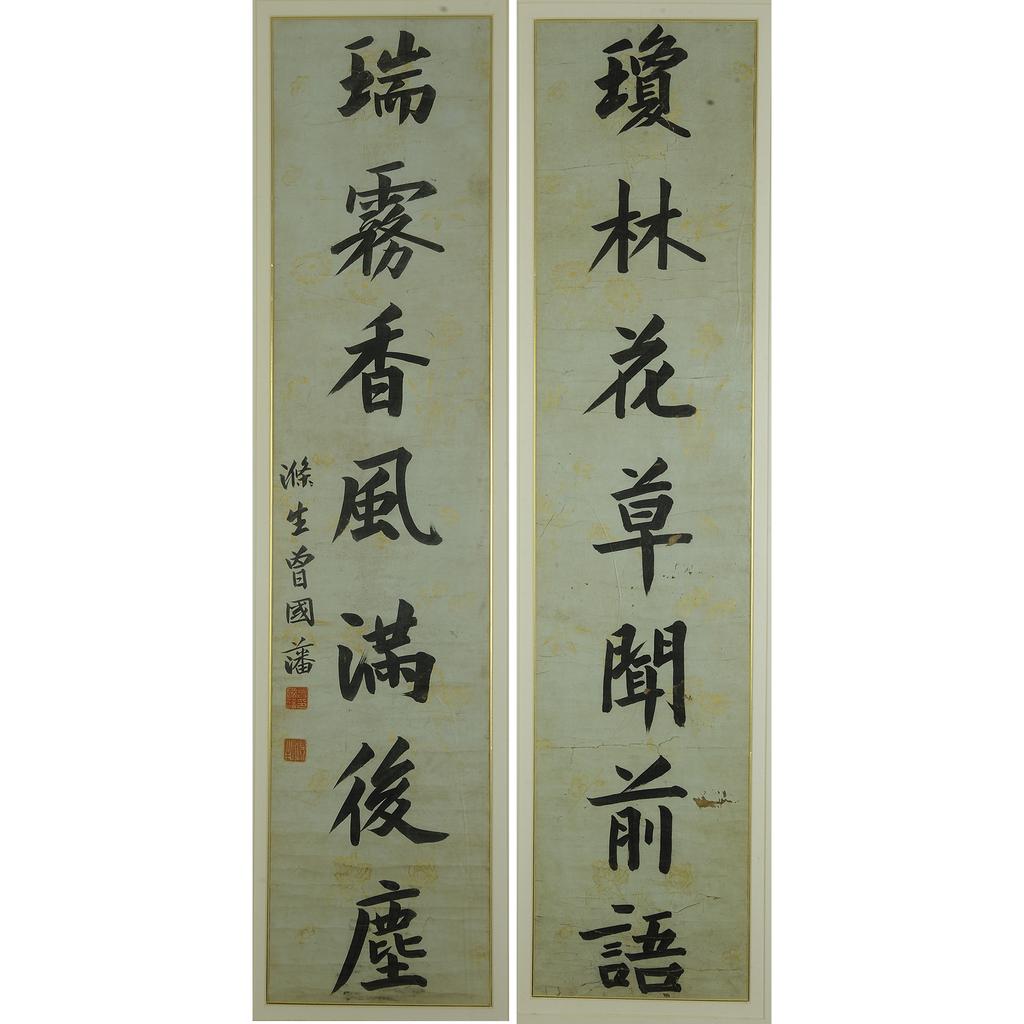 瓊林花草聞前語
瑞霧香風滿後塵
滌生曾國藩